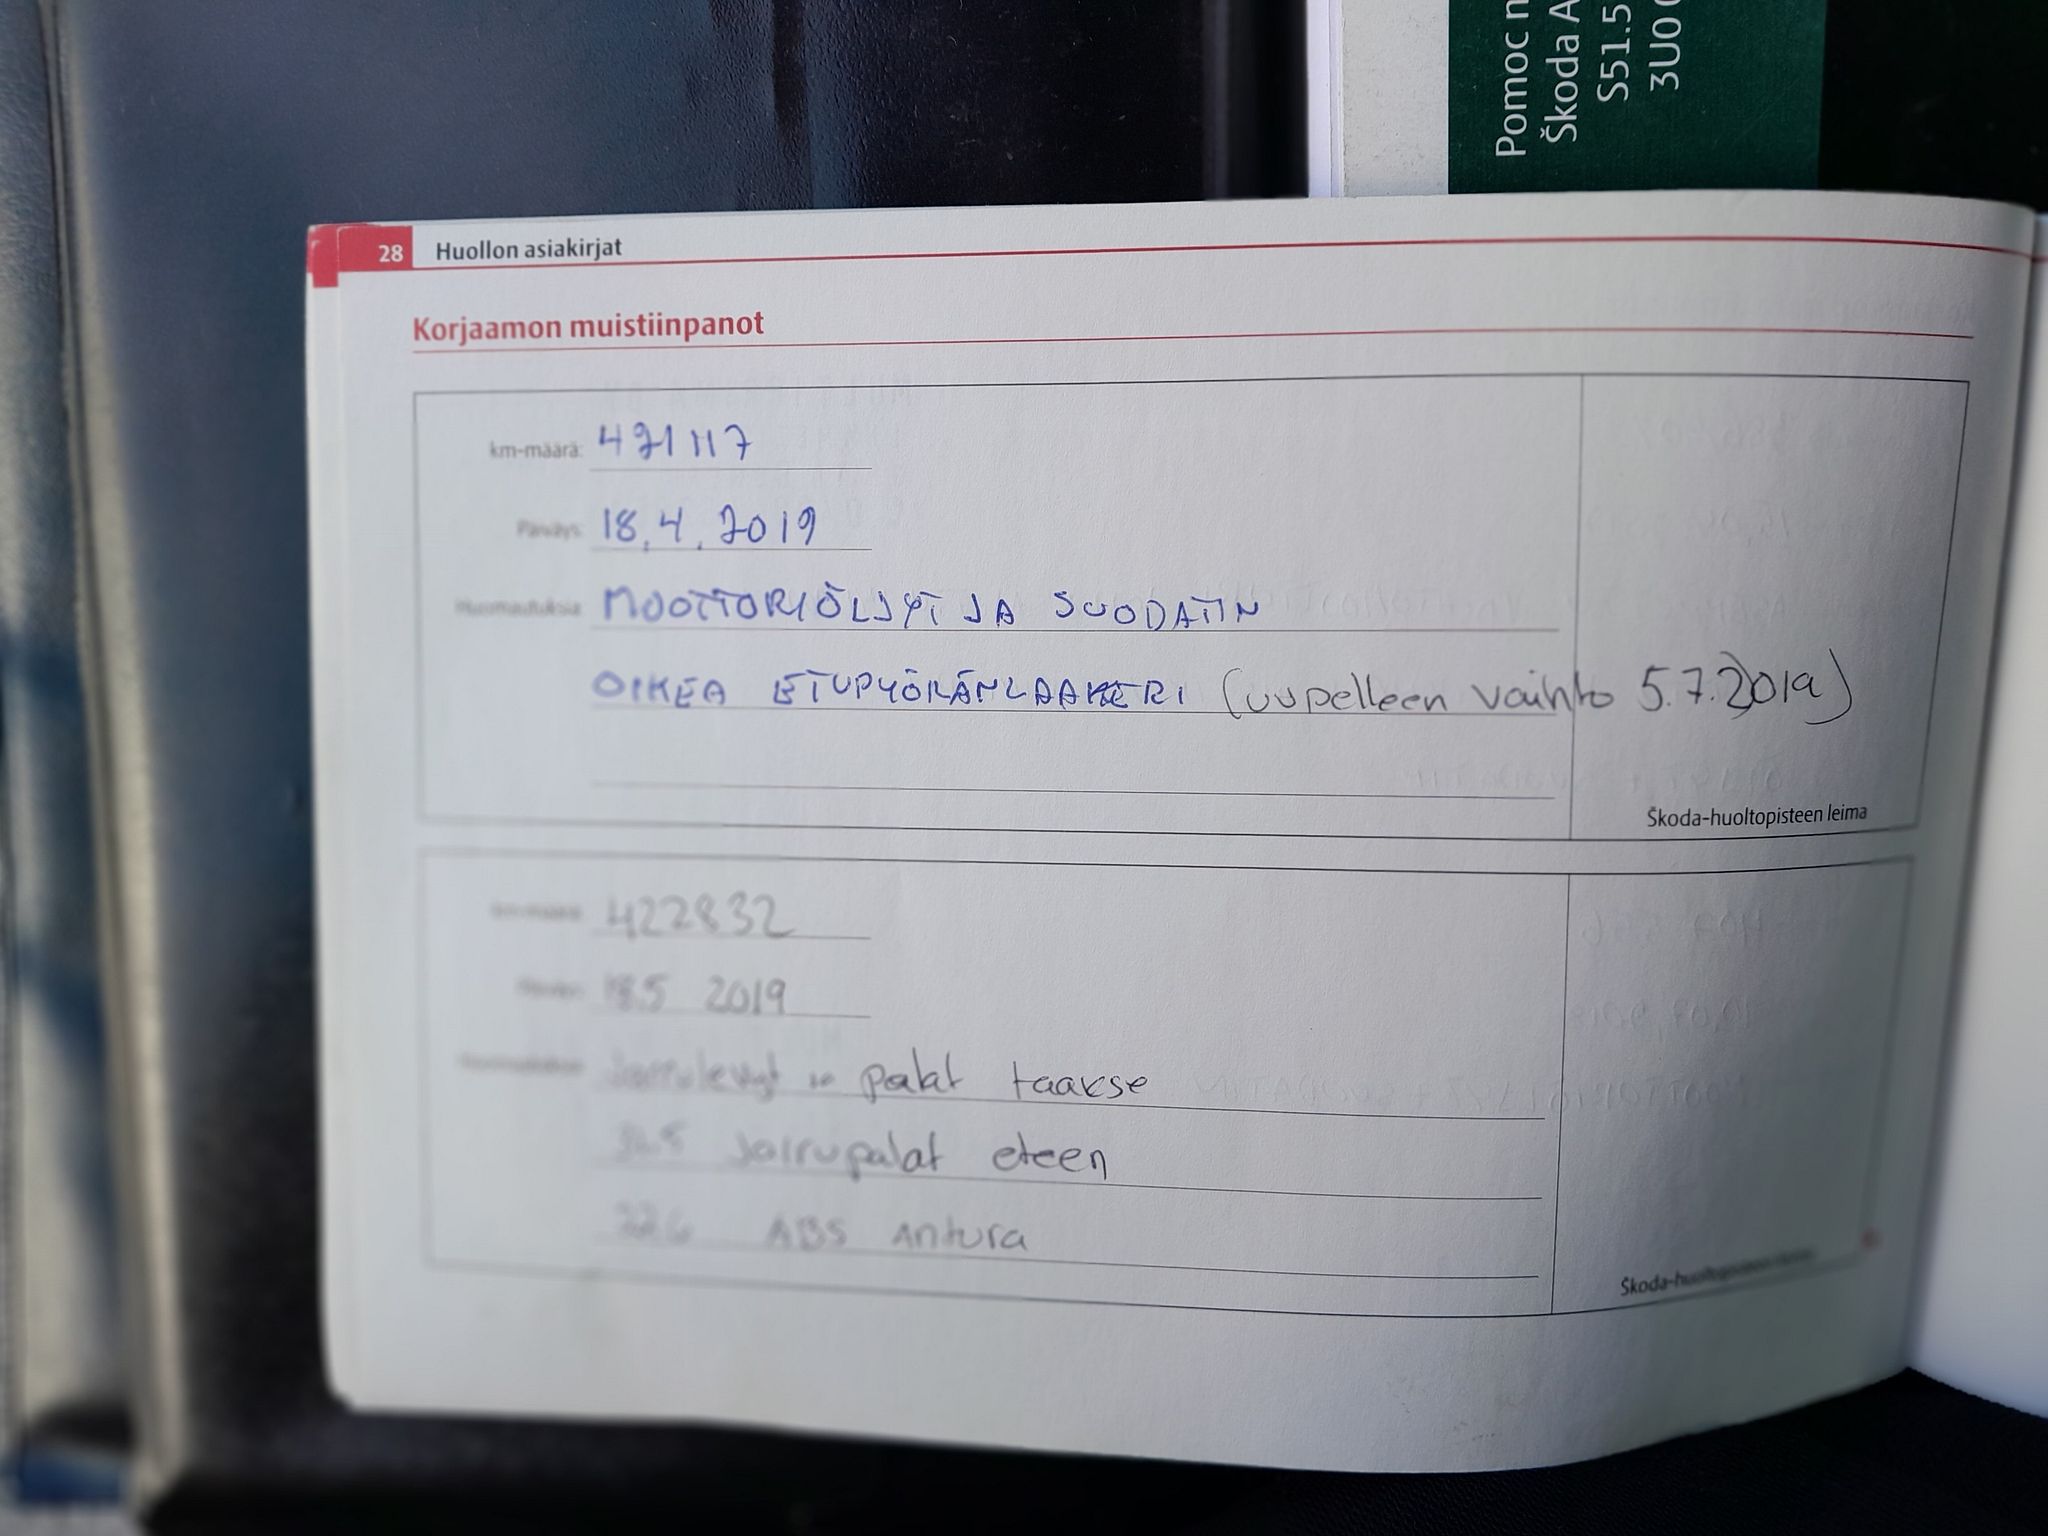 Pomoc n
Škoda A
S51.5
3U0 0
28 Huollon asiakirjat
Korjaamon muistiinpanot
km-määrä: 421117
Päiväys: 18.4.2019
Huomautuksia: MOOTTORIÖLJYT JA SUODATIN
OIKEA ETUPYÖRÄNLAAKERI (uupelleen vaihto 5.7.2019)
Škoda-huoltopisteen leima
km-määrä: 422832
Päiväys: 18.5 2019
Huomautuksia: Jarrulevyt ja palat taakse
Jarrupalat eteen
22.6 ABS Antura
Škoda-huoltopisteen leima